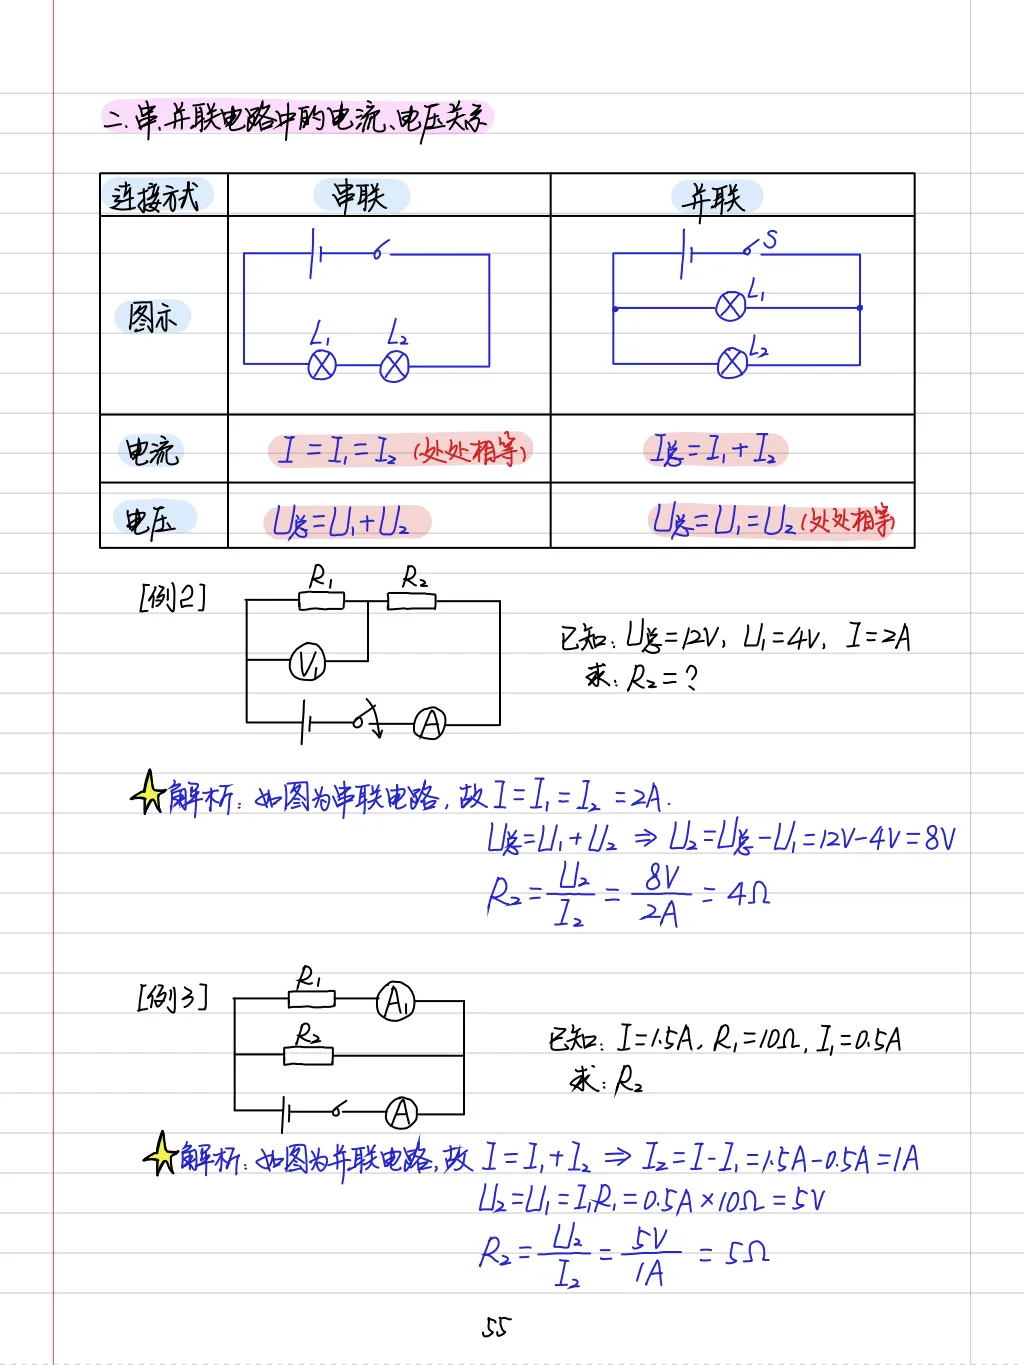 二.串、并联电路中的电流、电压关系
连接方式 串联 并联
图示
S
L₁
L₁ L₂
L₂
电流 I=I₁=I₂ (处处相等) I总=I₁+I₂
电压 U总=U₁+U₂ U总=U₁=U₂ (处处相等)
[例2]
R₁ R₂
V₁
A
已知: U总=12V, U₁=4V, I=2A
求: R₂=?
解析: 如图为串联电路, 故 I=I₁=I₂=2A.
U总=U₁+U₂ ⇒ U₂=U总-U₁=12V-4V=8V
R₂=U₂/I₂=8V/2A=4Ω
[例3]
R₁
A₁
R₂
A
已知: I=1.5A, R₁=10Ω, I₁=0.5A
求: R₂
解析: 如图为并联电路, 故 I=I₁+I₂ ⇒ I₂=I-I₁=1.5A-0.5A=1A
U₂=U₁=I₁R₁=0.5A×10Ω=5V
R₂=U₂/I₂=5V/1A=5Ω
55